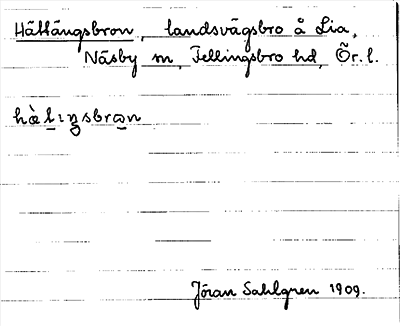 Hällängsbron, landsvägsbro å Lia,
Näsby sn, Fellingsbro hd, Ör. l.
hàlıŋsbrωn
Jöran Sahlgren 1909.